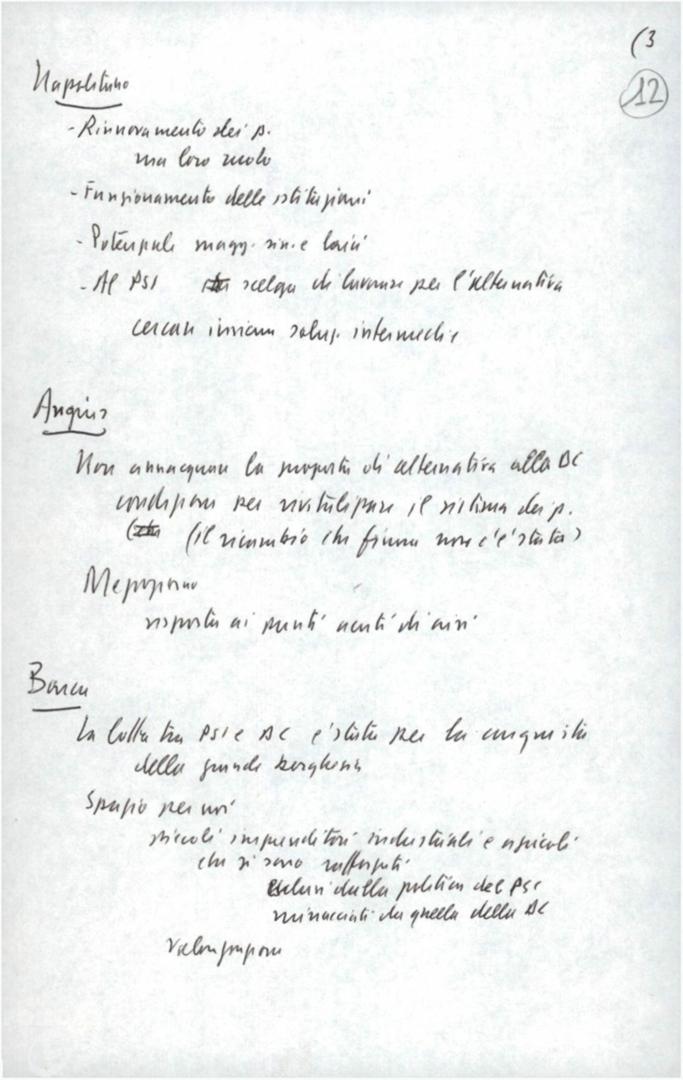 (3
12
Napolitano
- Rinnovamento dei p.
ma loro ruolo
- Funzionamento delle istituzioni
- Potenziale magg. sin. e laici
- Al PSI scelga di lavorare per l'alternativa
cercare insieme soluz. intermedie
Angius
Non annacquare la proposta di alternativa alla DC
condizione per rivitalizzare il sistema dei p.
(il ricambio che finora non c'è stato)
Mezzogiorno
risposta ai punti acuti di crisi
Barca
La lotta tra PSI e DC è stata per la conquista
della grande borghesia
Spazio per noi
piccoli imprenditori industriali e agricoli
che si sono rafforzati
delusi dalla politica del PSI
minacciati da quella della DC